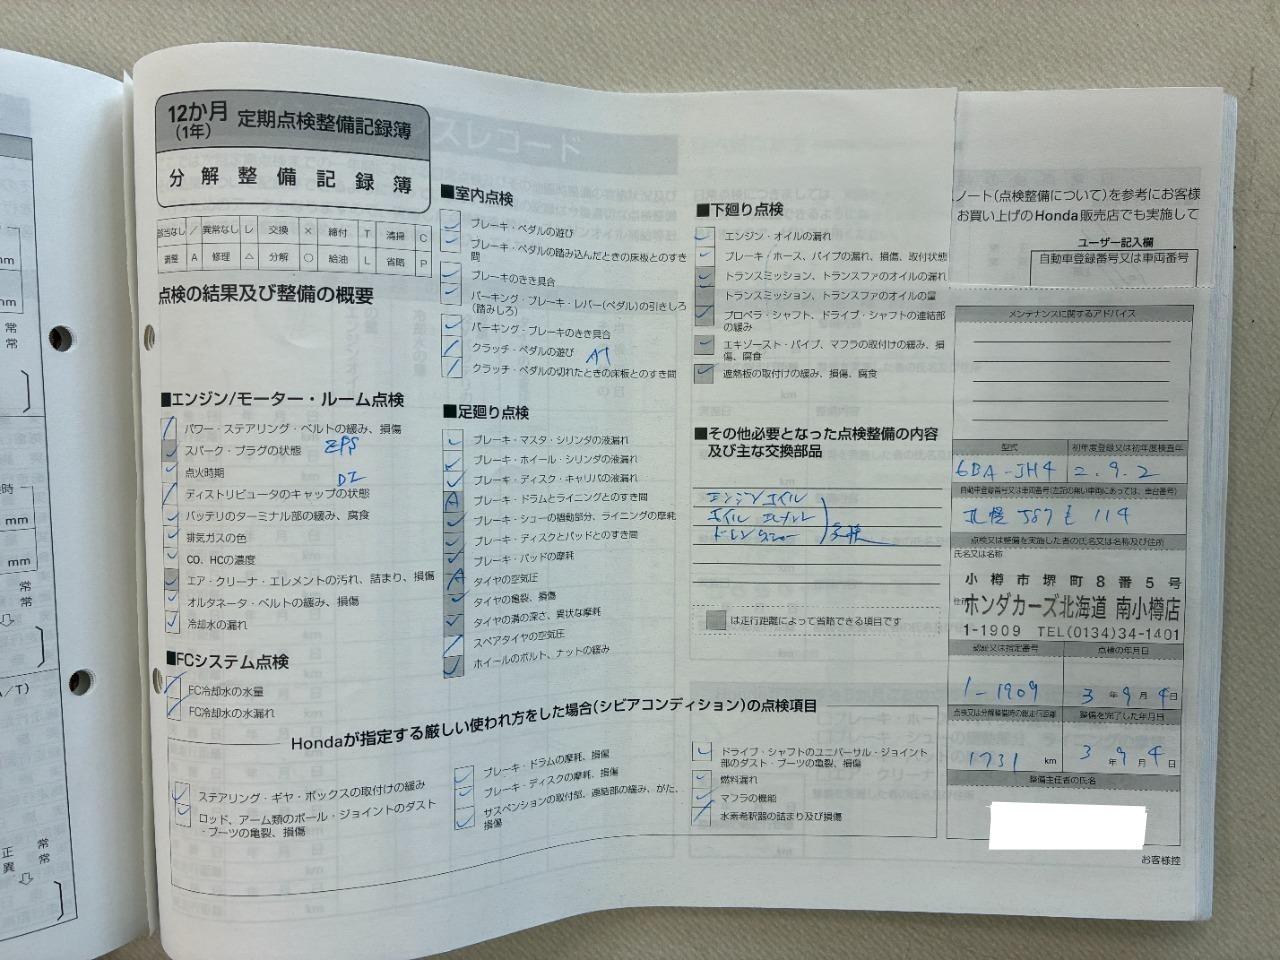 12か月
(1年)
定期点検整備記録簿
分解整備記録簿
該当なし / 異常なし レ 交換 × 締付 T 清掃 C
調整 A 修理 △ 分解 ○ 給油 L 省略 P
点検の結果及び整備の概要
■エンジン/モーター・ルーム点検
パワー・ステアリング・ベルトの緩み、損傷
スパーク・プラグの状態
EPS
点火時期
DI
ディストリビュータのキャップの状態
バッテリのターミナル部の緩み、腐食
排気ガスの色
CO、HCの濃度
エア・クリーナ・エレメントの汚れ、詰まり、損傷
オルタネータ・ベルトの緩み、損傷
冷却水の漏れ
■FCシステム点検
FC冷却水の水量
FC冷却水の水漏れ
■室内点検
ブレーキ・ペダルの遊び
ブレーキ・ペダルの踏み込んだときの床板とのすき間
ブレーキのきき具合
パーキング・ブレーキ・レバー(ペダル)の引きしろ
(踏みしろ)
パーキング・ブレーキのきき具合
クラッチ・ペダルの遊び
AT
クラッチ・ペダルの切れたときの床板とのすき間
■足廻り点検
ブレーキ・マスタ・シリンダの液漏れ
ブレーキ・ホイール・シリンダの液漏れ
ブレーキ・ディスク・キャリパの液漏れ
A ブレーキ・ドラムとライニングとのすき間
ブレーキ・シューの摺動部分、ライニングの摩耗
ブレーキ・ディスクとパッドとのすき間
ブレーキ・パッドの摩耗
A タイヤの空気圧
タイヤの亀裂、損傷
タイヤの溝の深さ、異状な摩耗
スペアタイヤの空気圧
ホイールのボルト、ナットの緩み
■下廻り点検
エンジン・オイルの漏れ
ブレーキ・ホース、パイプの漏れ、損傷、取付状態
トランスミッション、トランスファのオイルの漏れ
トランスミッション、トランスファのオイルの量
プロペラ・シャフト、ドライブ・シャフトの連結部
の緩み
エキゾースト・パイプ、マフラの取付けの緩み、損
傷、腐食
遮熱板の取付けの緩み、損傷、腐食
■その他必要となった点検整備の内容
及び主な交換部品
エンジンオイル
オイル エレメント
交換
は走行距離によって省略できる項目です
Hondaが指定する厳しい使われ方をした場合(シビアコンディション)の点検項目
ステアリング・ギヤ・ボックスの取付けの緩み
ロッド、アーム類のボール・ジョイントのダスト
・ブーツの亀裂、損傷
ブレーキ・ドラムの摩耗、損傷
ブレーキ・ディスクの摩耗、損傷
サスペンションの取付部、連結部の緩み、がた、
損傷
ドライブ・シャフトのユニバーサル・ジョイント
部のダスト・ブーツの亀裂、損傷
燃料漏れ
マフラの機能
水素希釈器の詰まり及び損傷
ノート(点検整備について)を参考にお客様
お買い上げのHonda販売店でも実施して
ユーザー記入欄
自動車登録番号又は車両番号
メンテナンスに関するアドバイス
型式 初年度登録又は初年度検査年
6BA-JH4 2.9.2
自動車登録番号又は車両番号(左記の無い車両にあっては、車台番号)
札幌 587 を 114
点検又は整備を実施した者の氏名又は名称及び住所
氏名又は名称
小樽市堺町8番5号
住所
ホンダカーズ北海道 南小樽店
1-1909 TEL(0134)34-1401
認証又は指定番号 点検の年月日
1-1909 3年9月4日
点検又は分解整備時の総走行距離 整備を完了した年月日
1731 km 3年9月4日
整備主任者の氏名
お客様控